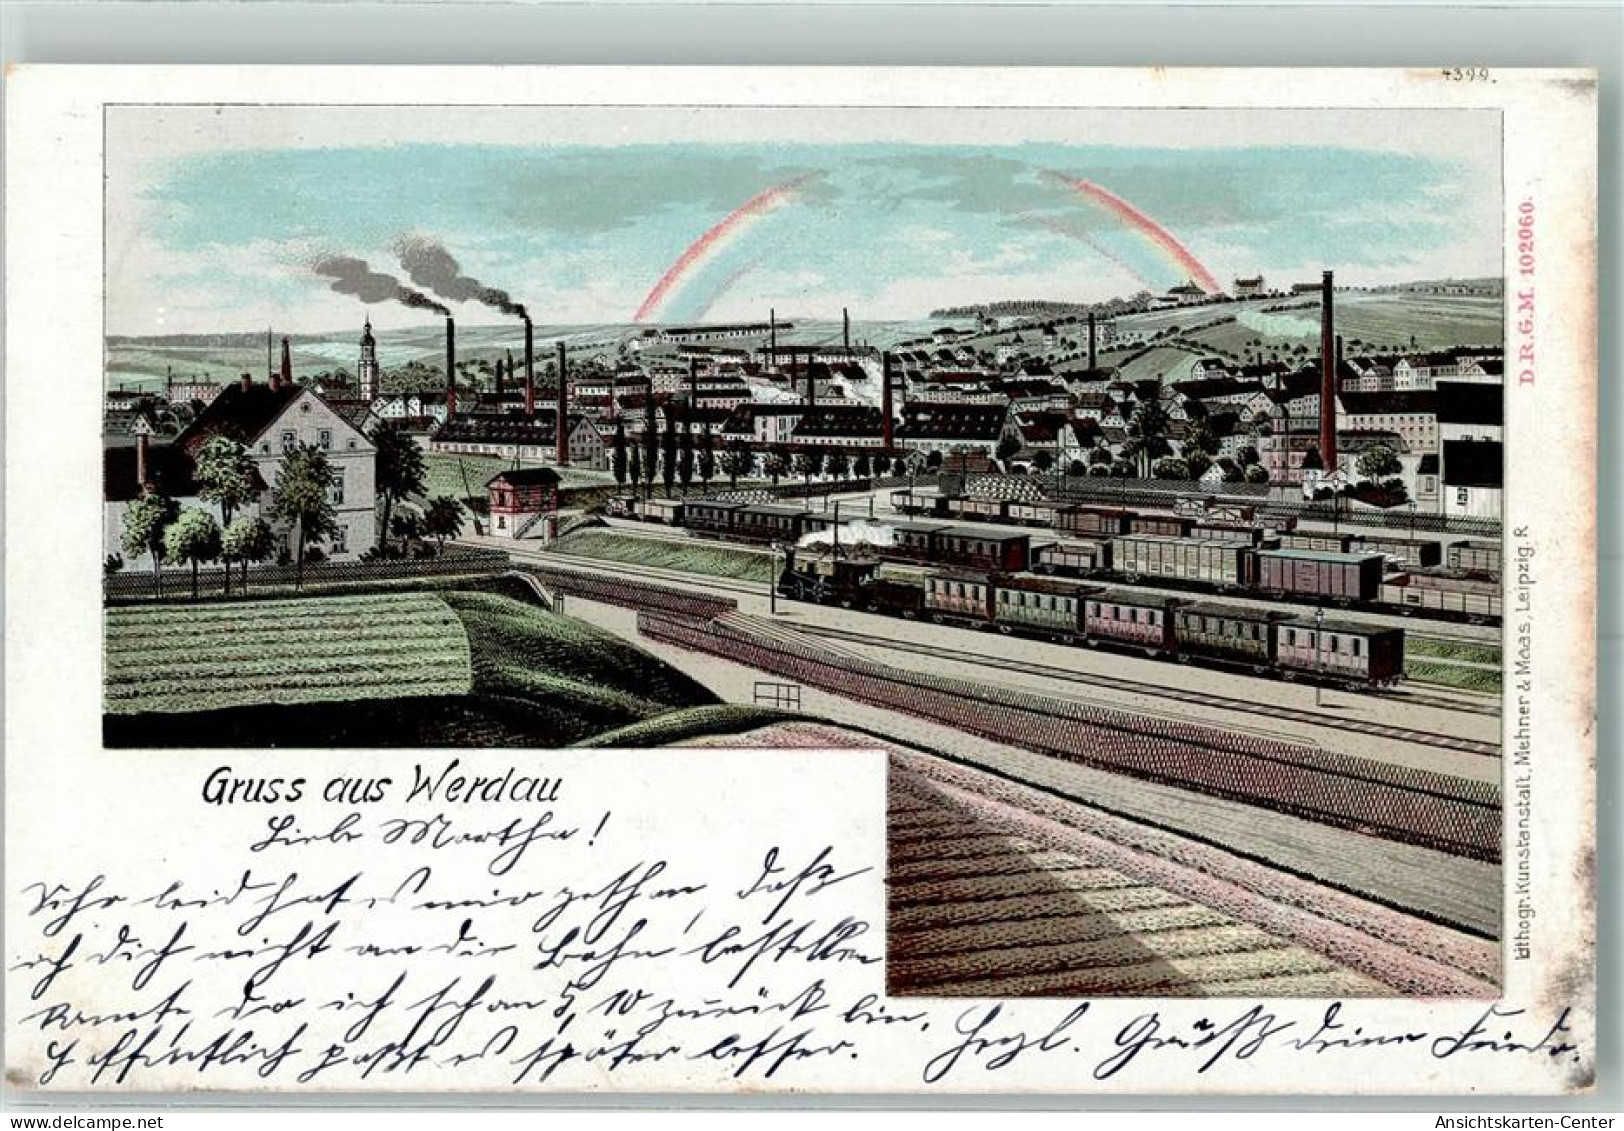 4399.
D.R.G.M. 102060.
Lithogr. Kunstanstalt, Mehner & Maas, Leipzig. R
Gruss aus Werdau
Liebe Martha!
Sehr leid hat es mir gethan, daß
ich dich nicht an die Bahn bestellen
konnte, da ich schon 5,10 zurück bin.
Hoffentlich paßt es später besser. Herzl. Grüß deine Frieda.
Ansichtskarten-Center